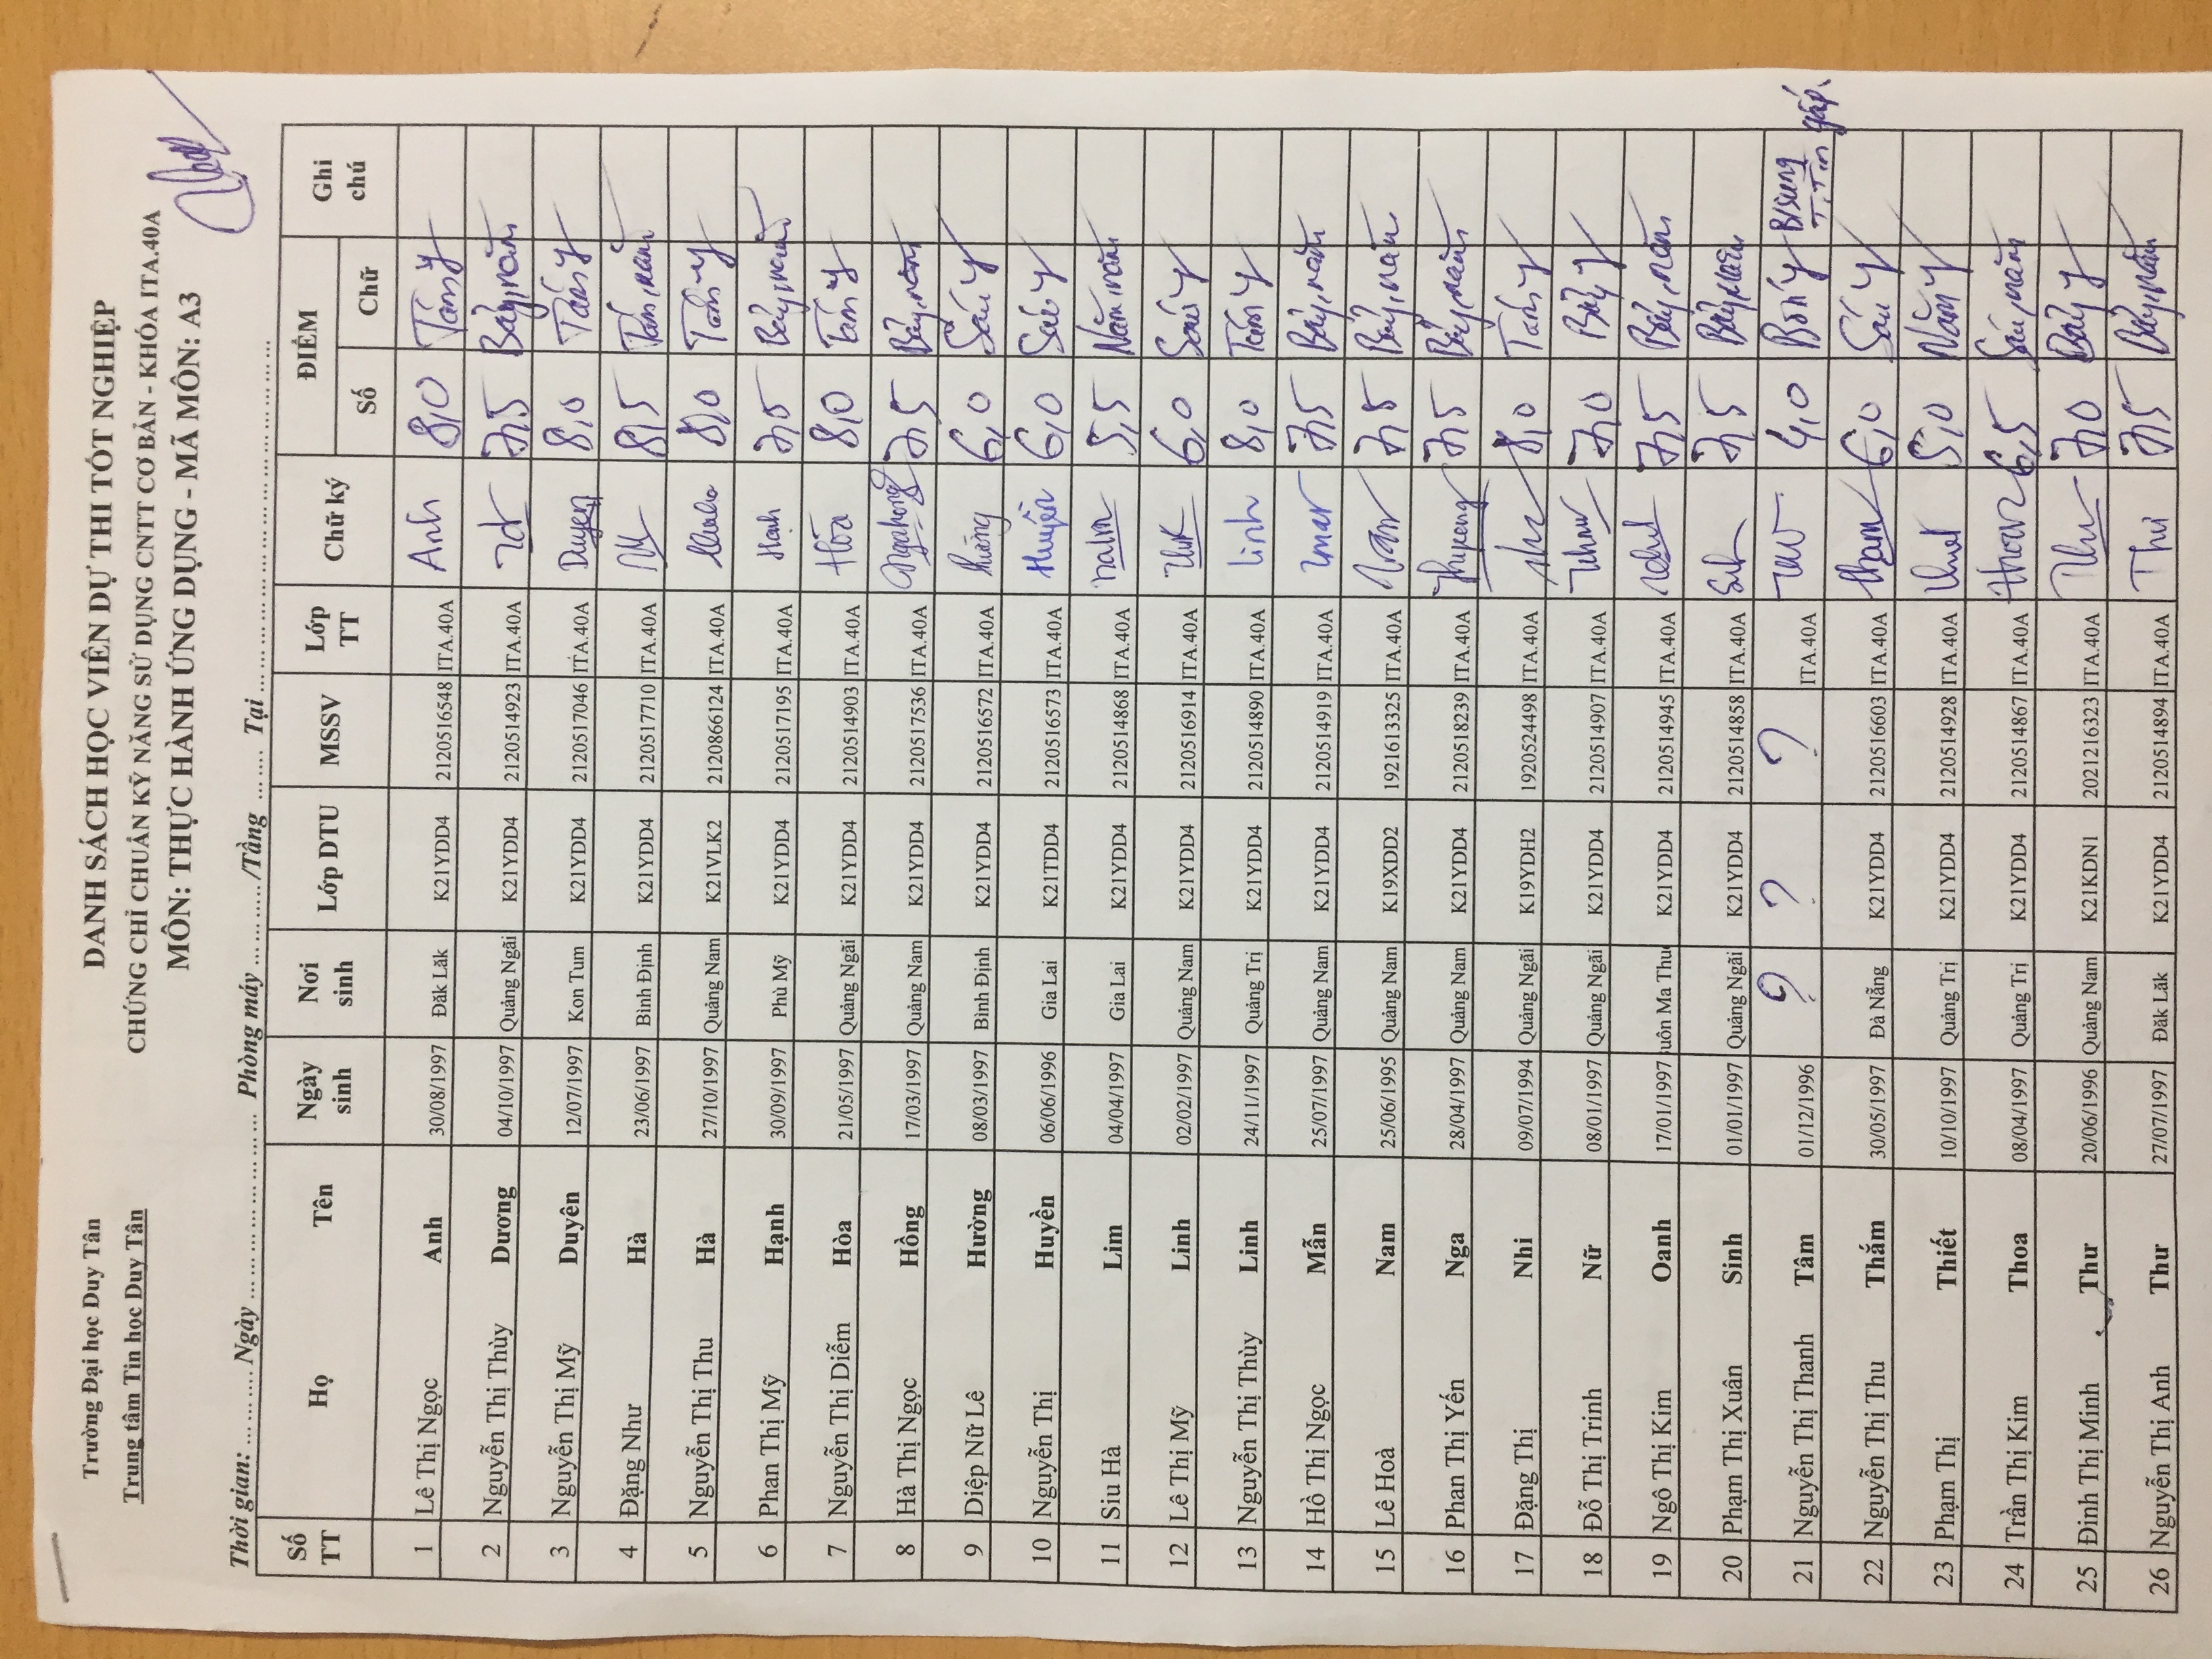 Trường Đại học Duy Tân
Trung tâm Tin học Duy Tân
DANH SÁCH HỌC VIÊN DỰ THI TỐT NGHIỆP
CHỨNG CHỈ CHUẨN KỸ NĂNG SỬ DỤNG CNTT CƠ BẢN - KHÓA ITA.40A
MÔN: THỰC HÀNH ỨNG DỤNG - MÃ MÔN: A3
Thời gian: ............ Ngày ........................ Phòng máy ........./Tầng ........ Tại ........................
Số TT Họ Tên Ngày sinh Nơi sinh Lớp DTU MSSV Lớp TT Chữ ký ĐIỂM Số Chữ Ghi chú
1 Lê Thị Ngọc Anh 30/08/1997 Đăk Lăk K21YDD4 2120516548 ITA.40A Anh 8,0 Tám y
2 Nguyễn Thị Thùy Dương 04/10/1997 Quảng Ngãi K21YDD4 2120514923 ITA.40A 7,5 Bảy, năm
3 Nguyễn Thị Mỹ Duyên 12/07/1997 Kon Tum K21YDD4 2120517046 ITA.40A Duyen 8,0 Tám y
4 Đặng Như Hà 23/06/1997 Bình Định K21YDD4 2120517710 ITA.40A 8,5 Tám, năm
5 Nguyễn Thị Thu Hà 27/10/1997 Quảng Nam K21VLK2 2120866124 ITA.40A 8,0 Tám y
6 Phan Thị Mỹ Hạnh 30/09/1997 Phù Mỹ K21YDD4 2120517195 ITA.40A Hạnh 7,5 Bảy, năm
7 Nguyễn Thị Diễm Hòa 21/05/1997 Quảng Ngãi K21YDD4 2120514903 ITA.40A Hòa 8,0 Tám y
8 Hà Thị Ngọc Hồng 17/03/1997 Quảng Nam K21YDD4 2120517536 ITA.40A 7,5 Bảy, năm
9 Diệp Nữ Lê Hường 08/03/1997 Bình Định K21YDD4 2120516572 ITA.40A 6,0 Sáu y
10 Nguyễn Thị Huyền 06/06/1996 Gia Lai K21TDD4 2120516573 ITA.40A Huyền 6,0 Sáu y
11 Siu Hà Lim 04/04/1997 Gia Lai K21YDD4 2120514868 ITA.40A 5,5 Năm, năm
12 Lê Thị Mỹ Linh 02/02/1997 Quảng Nam K21YDD4 2120516914 ITA.40A 6,0 Sáu y
13 Nguyễn Thị Thùy Linh 24/11/1997 Quảng Trị K21YDD4 2120514890 ITA.40A Linh 8,0 Tám y
14 Hồ Thị Ngọc Mẫn 25/07/1997 Quảng Nam K21YDD4 2120514919 ITA.40A 7,5 Bảy, năm
15 Lê Hoà Nam 25/06/1995 Quảng Nam K19XDD2 1921613325 ITA.40A 7,5 Bảy, năm
16 Phan Thị Yến Nga 28/04/1997 Quảng Nam K21YDD4 2120518239 ITA.40A 7,5 Bảy, năm
17 Đặng Thị Nhi 09/07/1994 Quảng Ngãi K19YDH2 1920524498 ITA.40A 8,0 Tám y
18 Đỗ Thị Trinh Nữ 08/01/1997 Quảng Ngãi K21YDD4 2120514907 ITA.40A 7,0 Bảy y
19 Ngô Thị Kim Oanh 17/01/1997 uôn Ma Thu K21YDD4 2120514945 ITA.40A 7,5 Bảy, năm
20 Phạm Thị Xuân Sinh 01/01/1997 Quảng Ngãi K21YDD4 2120514858 ITA.40A 7,5 Bảy, năm
21 Nguyễn Thị Thanh Tâm 01/12/1996 ? ? ? ITA.40A 4,0 Bốn y B/sung T.Tin gấp
22 Nguyễn Thị Thu Thắm 30/05/1997 Đà Nẵng K21YDD4 2120516603 ITA.40A Tham 6,0 Sáu y
23 Phạm Thị Thiết 10/10/1997 Quảng Trị K21YDD4 2120514928 ITA.40A 5,0 Năm y
24 Trần Thị Kim Thoa 08/04/1997 Quảng Trị K21YDD4 2120514867 ITA.40A 6,5 Sáu, năm
25 Đinh Thị Minh Thư 20/06/1996 Quảng Nam K21KDN1 2021216323 ITA.40A Thu 7,0 Bảy y
26 Nguyễn Thị Anh Thư 27/07/1997 Đăk Lăk K21YDD4 2120514894 ITA.40A Thư 7,5 Bảy, năm